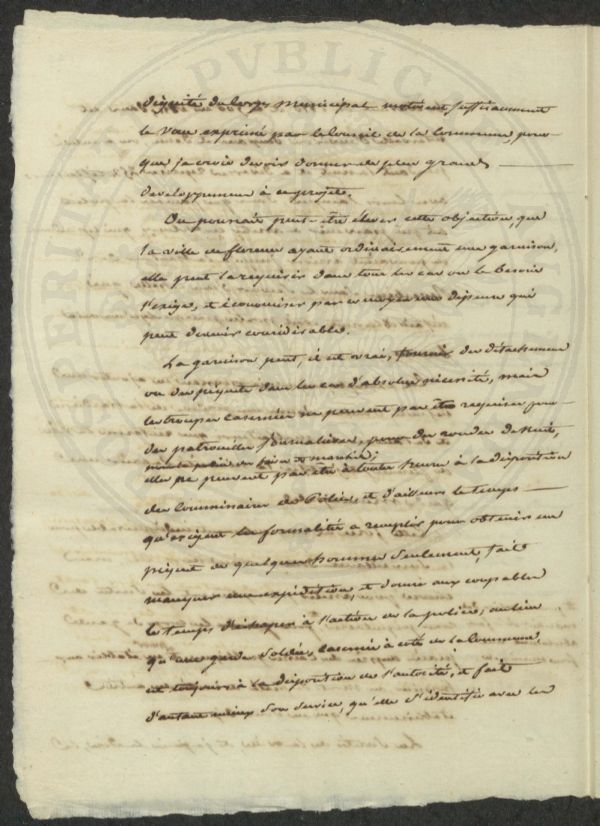 dignité du Corps municipal motivent suffisamment
le vœu exprimé par le Conseil de la Commune, pour
que je crois devoir donner de plus grands
developpemens à ce projet.
On pourrait peut-être élever cette objection, que
la ville de florence ayant ordinairement une garnison,
elle peut la requérir dans tous les cas où le besoin
l'exige, et économiser par ce moyen une dépense qui
peut devenir considérable.
La garnison peut, il est vrai, fournir des détachemens
ou des piquets dans les cas d'absolue nécessité, mais
les troupes casernées ne peuvent pas être requises pour
des patrouilles journalières, pour des rondes de nuit,
pour la police des foires et marchés;
elles ne peuvent pas être à toute heure à la disposition
des Commissaires de Police, et d'ailleurs le temps
qu'exigent les formalités a remplir pour obtenir un
piquet de quelques hommes seulement, fait
manquer une expédition, et donne aux coupables
le temps d'échapper à l'action de la police; au lieu
qu'une garde soldée, casernée à coté de la Commune,
est toujours à la disposition de l'autorité, et fait
d'autant mieux son service, qu'elle s'identifie avec les